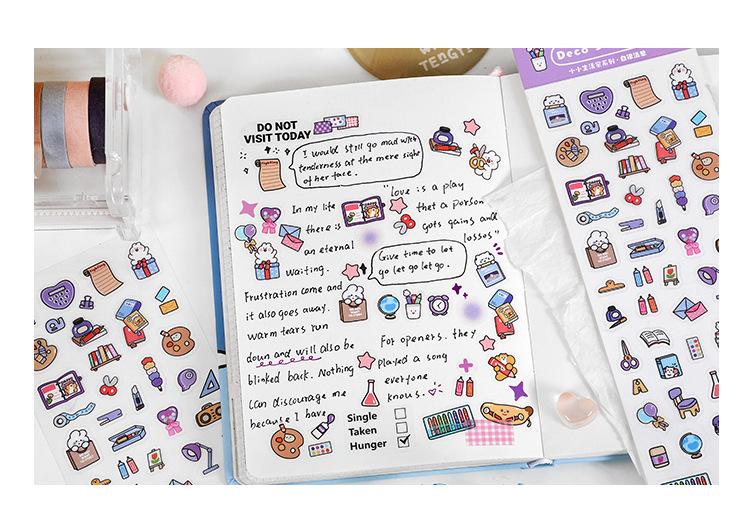 TENGYI
Deco
十十生活家系列·自律清单
DO NOT
VISIT TODAY
I would still go mad with
tenderness at the mere sight
of her face.
In my life
there is
an eternal
waiting.
"Love is a play
that a person
gots gains and
losses"
Give time to let
go let go let go.
Frustration come and
it also goes away.
warm tears run
down and will also be
blinked back. Nothing
Can discourage me
because I have
For openers. they
played a song
everyone
knows.
Single
Taken
Hunger